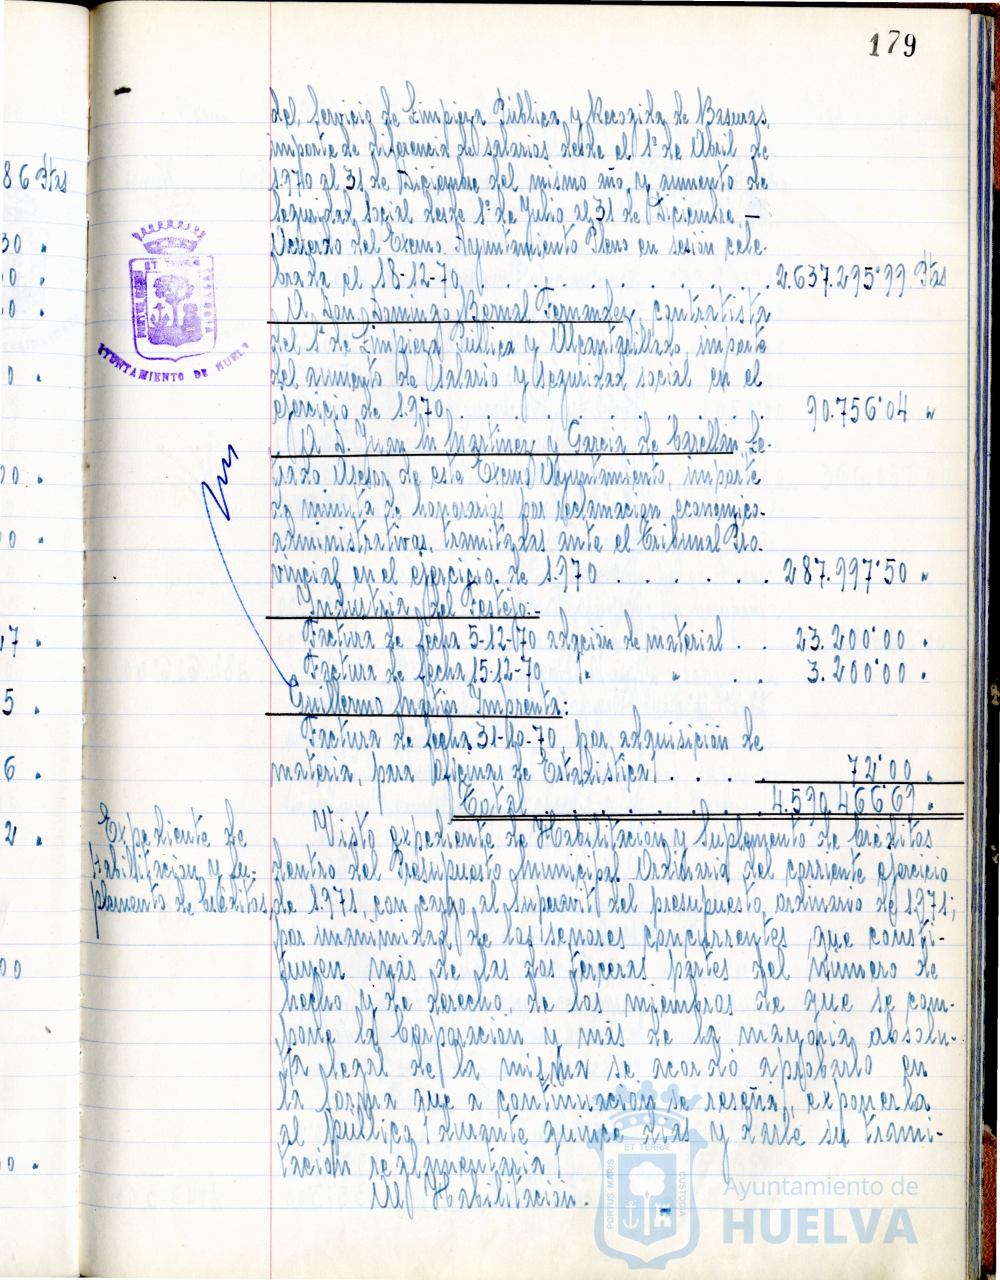 179
del Servicio de Limpieza Pública y Recogida de Basuras,
importe de diferencia de salarios desde el 1º de Abril de
1.970 al 31 de Diciembre del mismo año, y aumento de
Seguridad Social desde 1º de Julio al 31 de Diciembre. —
Acuerdo del Excmo. Ayuntamiento Pleno en sesión cele-
brada el 18-12-70 . . . . . . . . . 2.637.295'99 Ptas
A Don Domingo Bernal Fernandez, contratista
del Sº de Limpieza Pública y Alcantarillado, importe
del aumento de salario y seguridad social en el
ejercicio de 1.970 . . . . . . . . . 90.756'04 "
A D. Juan M Martinez y Garcia de Casellan, Le-
trado Asesor de este Excmo Ayuntamiento, importe
de minuta de honorarios por reclamacion economico-
administrativas, tramitadas ante el Tribunal Pro-
vincial en el ejercicio de 1.970 . . . . . . 287.997'50 "
Industria del Festejo:-
Factura de fecha 5-12-70 adqción de material . . 23.200'00 "
Factura de fecha 15-12-70 " " . . 3.200'00 "
Guillermo Martin Imprenta:
Factura de fecha 31-10-70, por adquisición de
materia, para Oficinas de Estadistica . . . . 72'00 "
Total 4.590.466'69 "
Expediente de
Habilitación y Su-
plemento de Créditos.
Visto expediente de Habilitación y Suplemento de Créditos
dentro del Presupuesto Municipal Ordinario del corriente ejercicio
de 1.971, con cargo al Superavit del presupuesto ordinario de 1.971;
por unanimidad de los señores concurrentes, que consti-
tuyen más de las dos terceras partes del número de
hecho y de derecho, de los miembros de que se com-
pone la Corporacion y más de la mayoria absolu-
ta legal de la misma se acordó aprobarlo en
la forma que a continuación se reseña, exponerla
al publico durante quince dias y darle su trami-
tación reglamentaria
A) Habilitación.
86 Ptas
30 "
0 "
0 "
0 "
00 "
0 "
47 "
5 "
6 "
2 "
00
0 "
AYUNTAMIENTO DE HUELVA
PORTUS MARIS ET TERRAE CUSTODIA
Ayuntamiento de
HUELVA